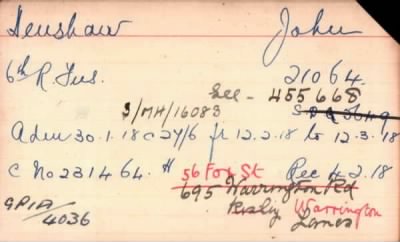 Henshaw John
6th R Fus. 21064.
See - 455668
3/MH/16083
Adm 30.1.18 c 27/6 fr 12.2.18 to 12.3.18
C No 231464. H 56 Fox St Rec 4.2.18
695 Warrington Rd
GPIA/4036 Risly Warrington
Lancs